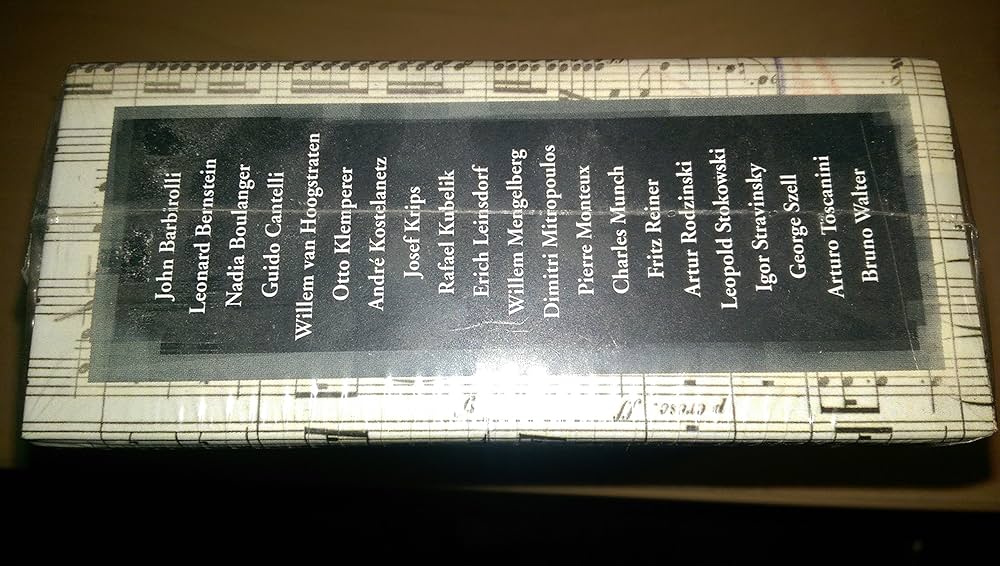 John Barbirolli
Leonard Bernstein
Nadia Boulanger
Guido Cantelli
Willem van Hoogstraten
Otto Klemperer
André Kostelanetz
Josef Krips
Rafael Kubelik
Erich Leinsdorf
Willem Mengelberg
Dimitri Mitropoulos
Pierre Monteux
Charles Munch
Fritz Reiner
Artur Rodzinski
Leopold Stokowski
Igor Stravinsky
George Szell
Arturo Toscanini
Bruno Walter
p cresc. ff